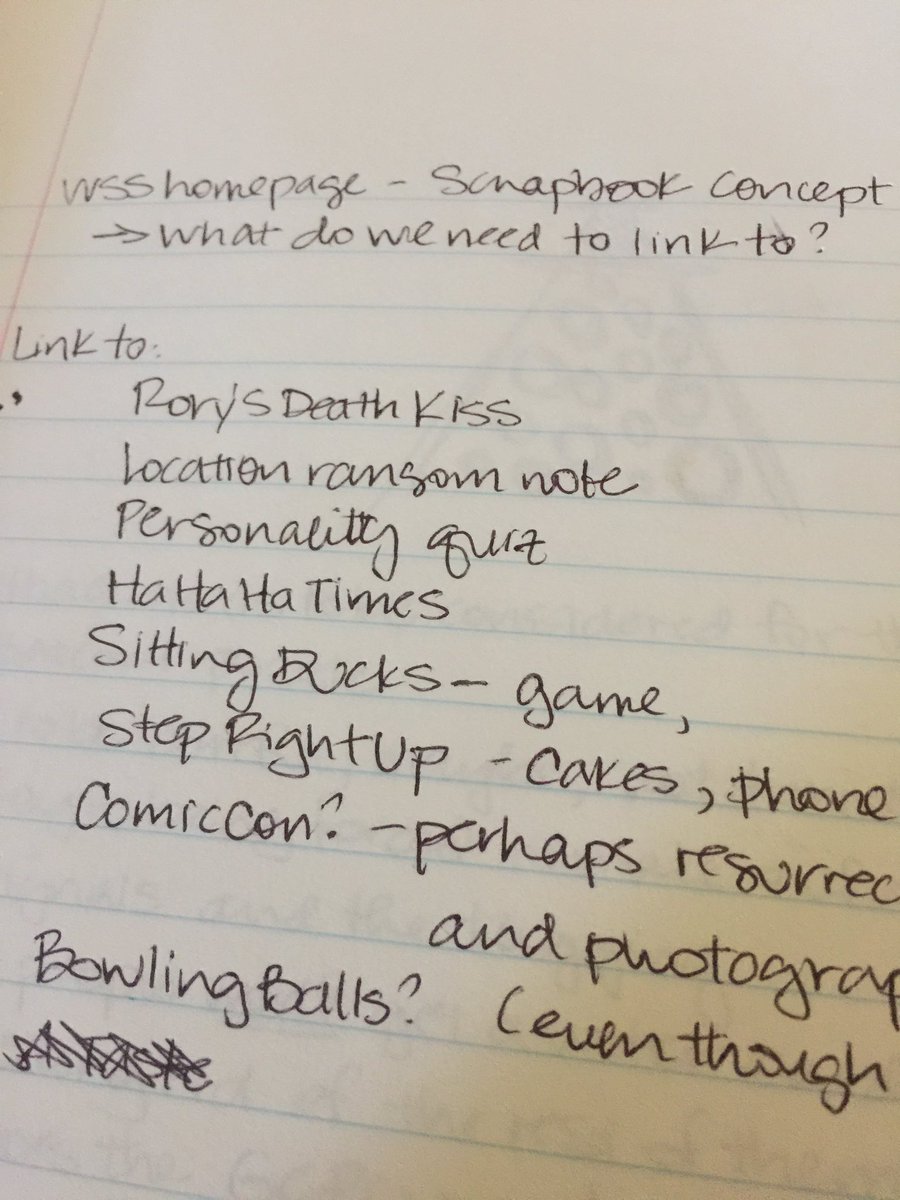 WSS homepage - Scrapbook Concept
→ What do we need to link to?
Link to:
Rory's Death Kiss
Location ransom note
Personality quiz
HaHaHa Times
Sitting Ducks - game,
Step Right Up - Cakes, phone
ComicCon? - perhaps resurrec
and photograp
Bowling Balls? (even though